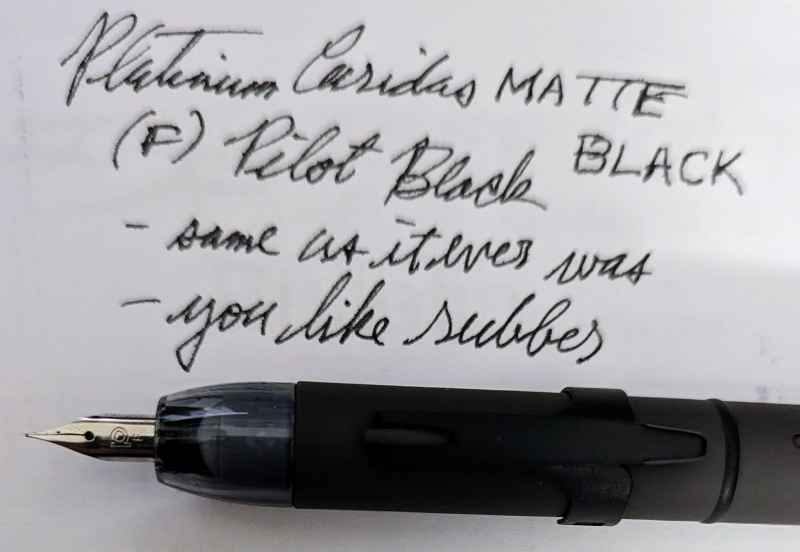 Platinum Curidas MATTE
(F) Pilot Black BLACK
- same as it ever was
- you like rubber
P